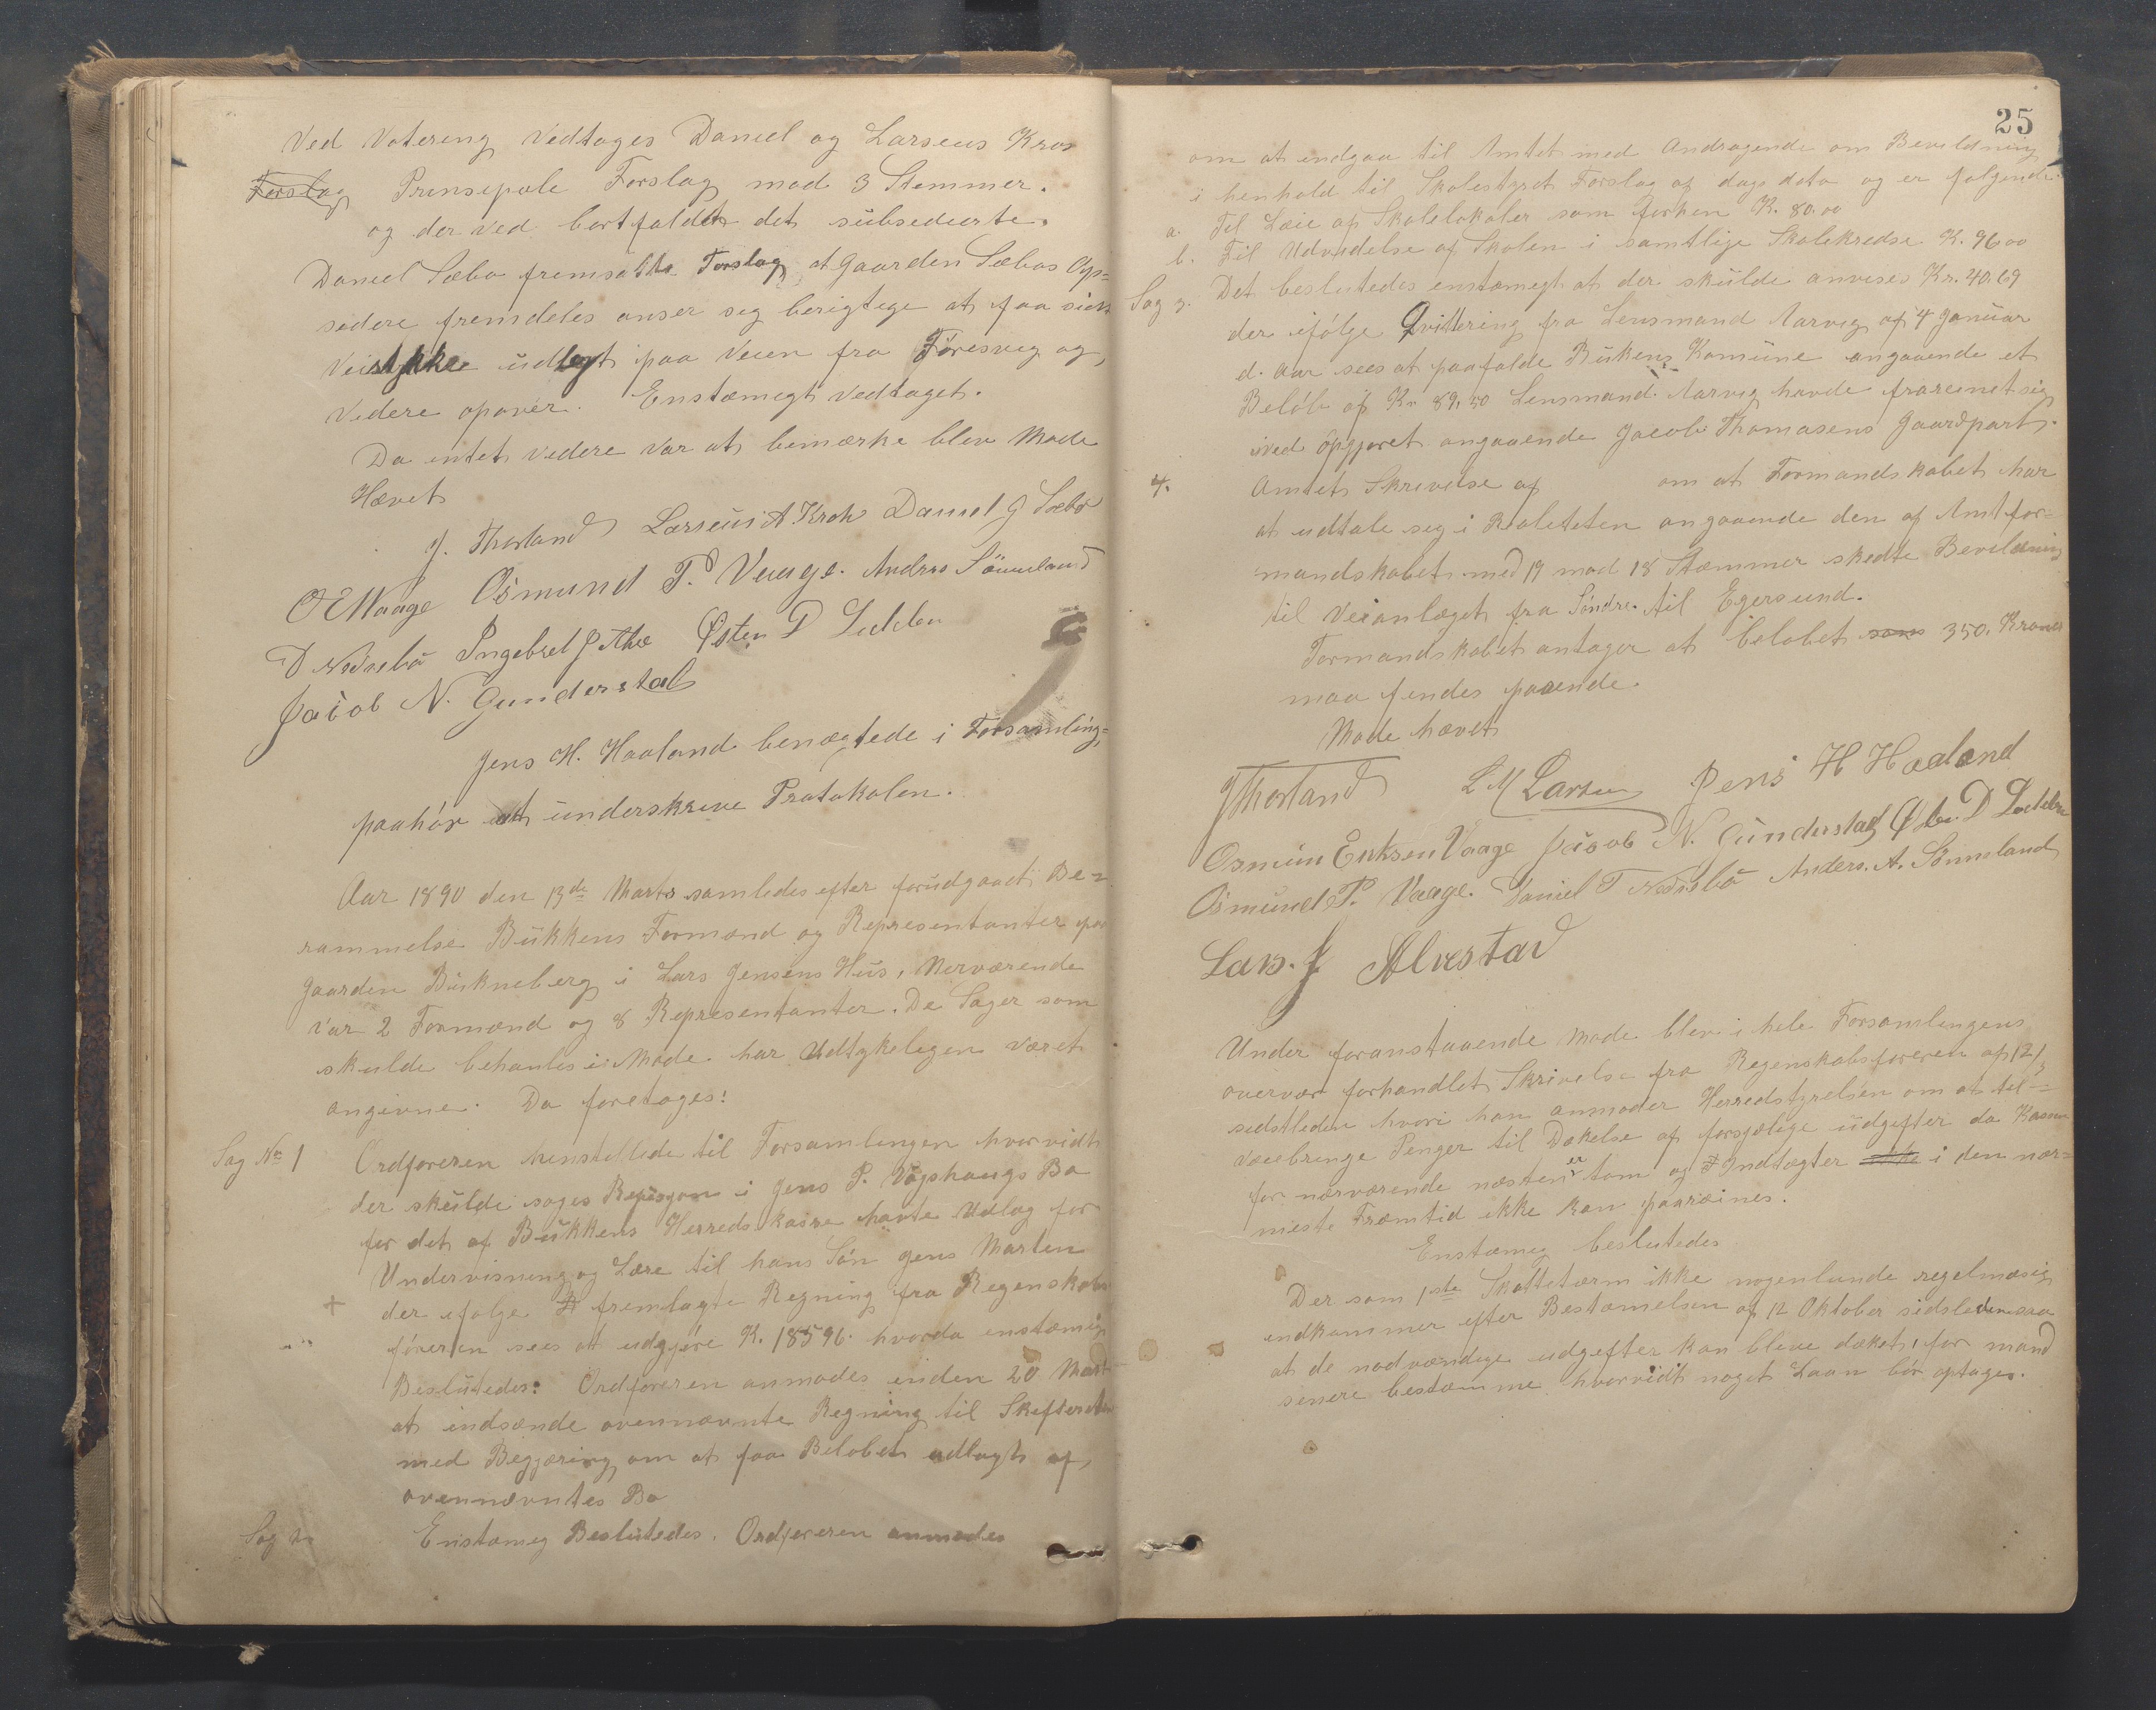 Ved Votering Vedtages Daniel og Larseus Kros
Forslag Prinsepale Forslag mod 3 Stemmer.
og der ved bortfaldet det subsedierte.
Daniel Sæbø fremsatte Forslag, at Gaarden Sæbøs Op-
sedere fremdeles anser seg berigtege at faa sin
Veistykke udlagt paa Veien fra Føresvig og
Videre opover. Enstæmigt vedtaget.
Da intet videre var at bemærke blev Møde
Hævet
J. Thorland Larseus A. Kroh Daniel J Sæbø
O E Waage Osmund P. Vaage. Andreas Sønneland
D Nedrebø Ingebret J Østen D Lodden
Jacob N. Gunderstad
Jens H. Haaland benægtede i Forsamling-
paahør at underskreve Protokolen.
Aar 1890 den 13de Marts samledes efter forudgaaet Be-
rammelse Bukkens Formænd og Representanter paa
Gaarden Bukneberg i Lars Jensens Hus, Nerværende
var 2 Formænd og 8 Representanter. De Sager som
skulde behanles i Møde har Udtykeligen været
angivne. Da foretages:
Sag No 1 Ordføreren henstillede til Forsamlingen hvorvidt
der skulde søges Refusjon i Jens P. Vågshaugs Bo
for det af Bukkens Herredskasse havte Udlag for
Undervisning og Lære til hans Søn Jens Marten
+ der efølge fremlagte Regning fra Regenskabs
føreren sees at udgjøre K. 185 96. hvorda enstæmig
Beslutedes: Ordføreren anmodes inden 20 Marts
at indsænde ovennævnte Regning til Skefteretten
med Begjæring om at faa Beløbet udlagt af
ovennævntes Bo
Sag 2 Enstæmig Beslutedes. Ordføreren anmodes
25
om at indgaa til Amtet med Andragende om Bevilgning
i henhold til Skolestyret Forslag af dags dato og er følgende.
a. Til Leie af Skolelokaler som forhen K. 80.00
b. Til Udvidelse af Skolen i samtlige Skolekredse K. 96 00
Sag 3. Det beslutedes enstæmigt at der skulde anvises Kr. 40.69
der ifølge Qvittering fra Lensmand Aarvig af 4 Januar
d. Aar sees at paafalde Bukens Komune angaaende et
Beløb af Kr 89,50 Lensmand Aarvig havde frareinet sig
ved Opgjøret angaaende Jacob Thomasens Gaardpart.
4. Amtets Skrivelse af om at Formandskabet har
at udtale seg i Realeteten angaaende den af Amtfor-
mandskabet med 19 mod 18 Stæmmer skedte Bevilgning
til Veianlæget fra Søndre til Egersund.
Formandskabet antager at beløbet som 350. Kroner
maa findes paaende.
Møde hævet
J Thorland L M Larsen Jens H Haaland
Osmun Eriksen Vaage Jacob N. Gunderstad Østen D Lodden
Osmund P. Vaage. Daniel T Nedrebø Anders. A. Sønneland
Lars. J Alvestad
Under foranstaaende Møde blev i hele Forsamlingens
overvær forhandlet Skrivelse fra Regenskabsføreren af 12/3
sidstleden hvori han anmoder Herredstyrelsen om at til-
veiebringe Penger til Dækelse af forsjælige udgifter da Kassen
for nærværende næsten er tom og Indtægter ikke i den nær-
meste Fræmtid ikke kan paareines.
Enstæmig beslutedes
Der som 1ste Skattetærm ikke nogenlunde regelmæsig
indkommer efter Bestæmelsen af 12 Oktober sidsleden saa
at de nødvændige udgefter kan bleve dæket, for mand
senere bestæmme hvorvidt noget Laan bør optages.